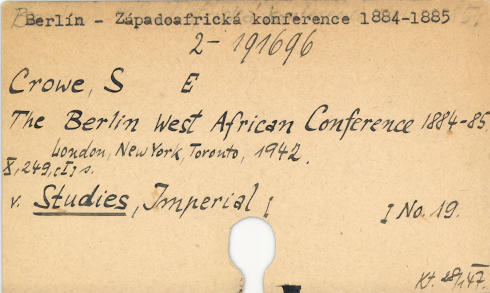 Berlín - Západoafrická konference 1884-1885
2-191696
Crowe, S E
The Berlin West African Conference 1884-85.
London, New York, Toronto, 1942.
X, 249, [I] s.
v. Studies, Imperial [ ] No. 19.
Kt. 28/147.